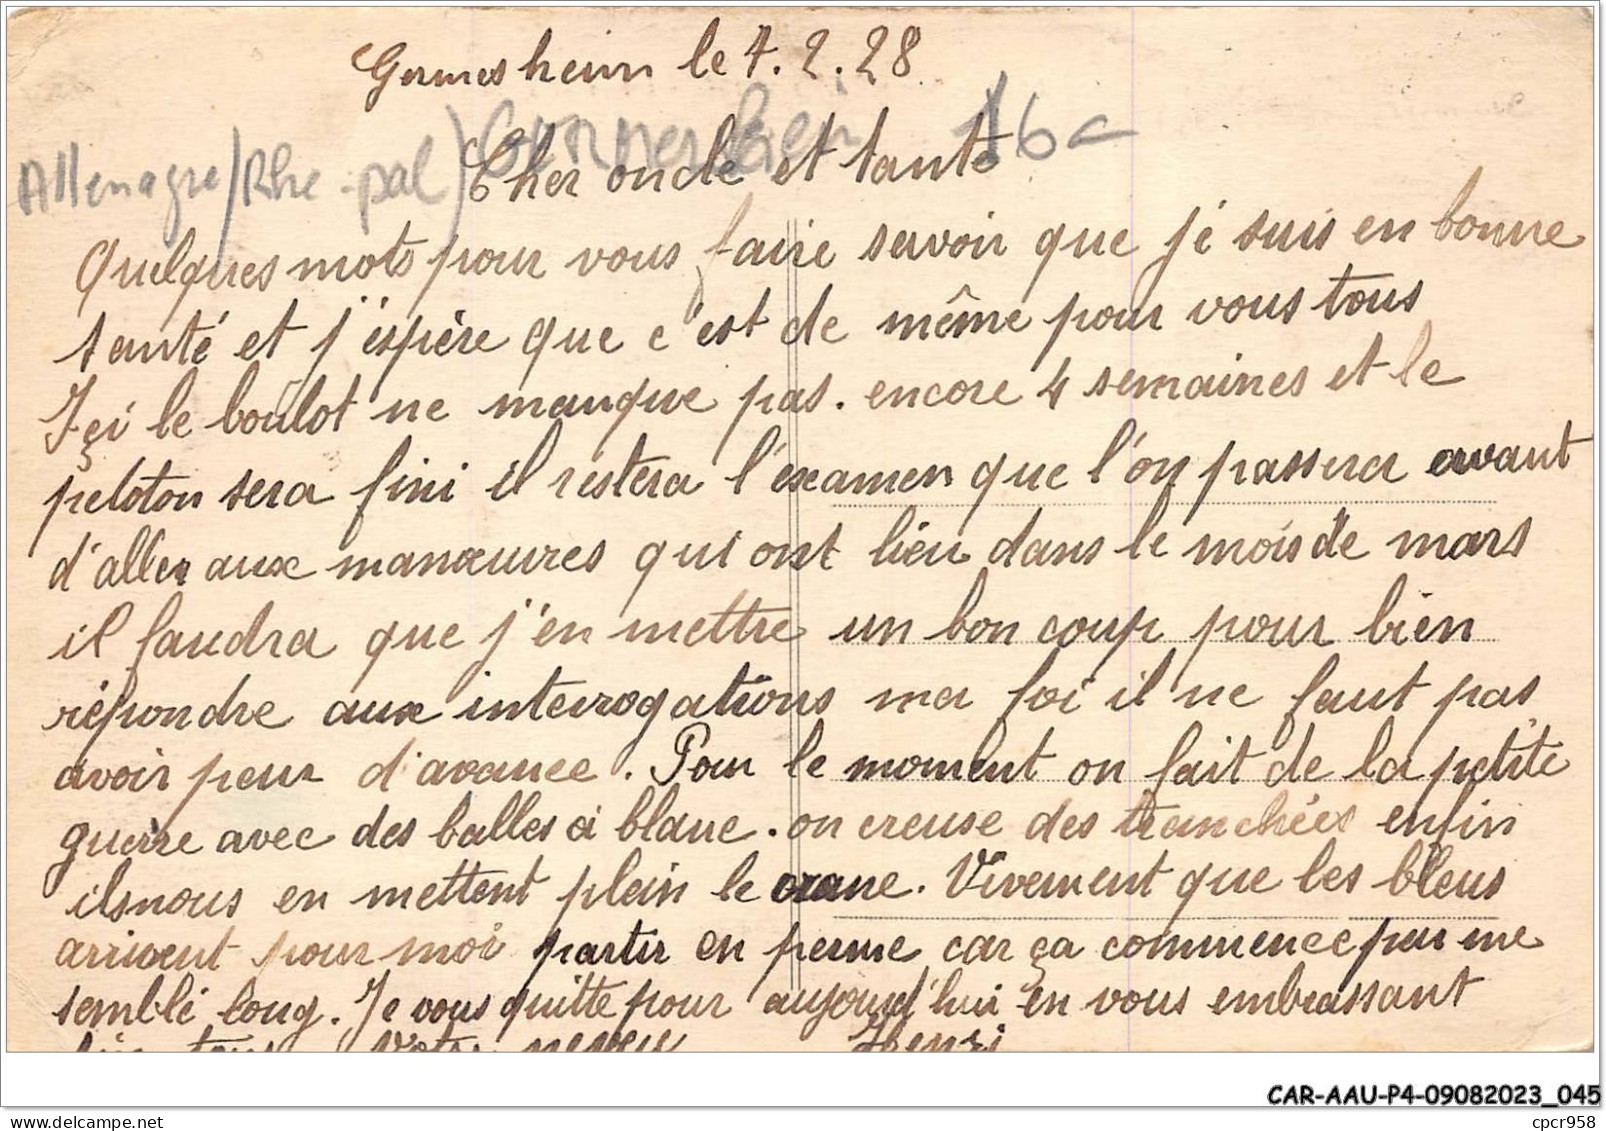 Germesheim le 7.2.28
Allemagne / Rhe-pal) Germersheim 16c
Cher oncle et tante
Quelques mots pour vous faire savoir que je suis en bonne
santé et j'éspère que c'est de même pour vous tous
Içi le boulot ne manque pas. encore 4 semaines et le
peloton sera fini il restera l'examen que l'on passera avant
d'aller aux manœuvres qui ont lieu dans le mois de mars
il faudra que j'en mettre un bon coup pour bien
répondre aux interrogations ma foi il ne faut pas
avoir peur d'avance. Pour le moment on fait de la petite
guerre avec des balles à blanc. on creuse des tranchées enfin
ils nous en mettent plein le crane. Vivement que les bleus
arrivent pour moi partir en perme car ça commence par me
semblé long. Je vous quitte pour aujourd'hui en vous embrassant
bien tous Votre neveu Henri
CAR-AAU-P4-09082023_045
cpcr958